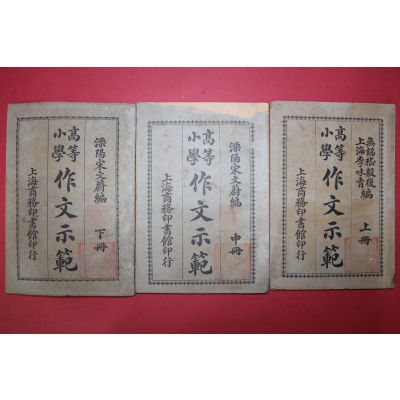 無錫嵇毅復
上海李味青
編
上冊
高等小學
作文示範
上海商務印書館印行
溧陽宋文蔚編
中冊
高等小學
作文示範
上海商務印書館印行
溧陽宋文蔚編
下冊
高等小學
作文示範
上海商務印書館印行